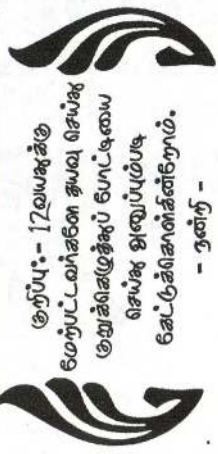 குறிப்பு:- 12வயதுக்கு
மேற்பட்டவர்களே தயவு செய்து
குறுக்கெழுத்துப் போட்டியை
செய்து அனுப்பும்படி
கேட்டுக்கொள்கின்றோம்.
- நன்றி -